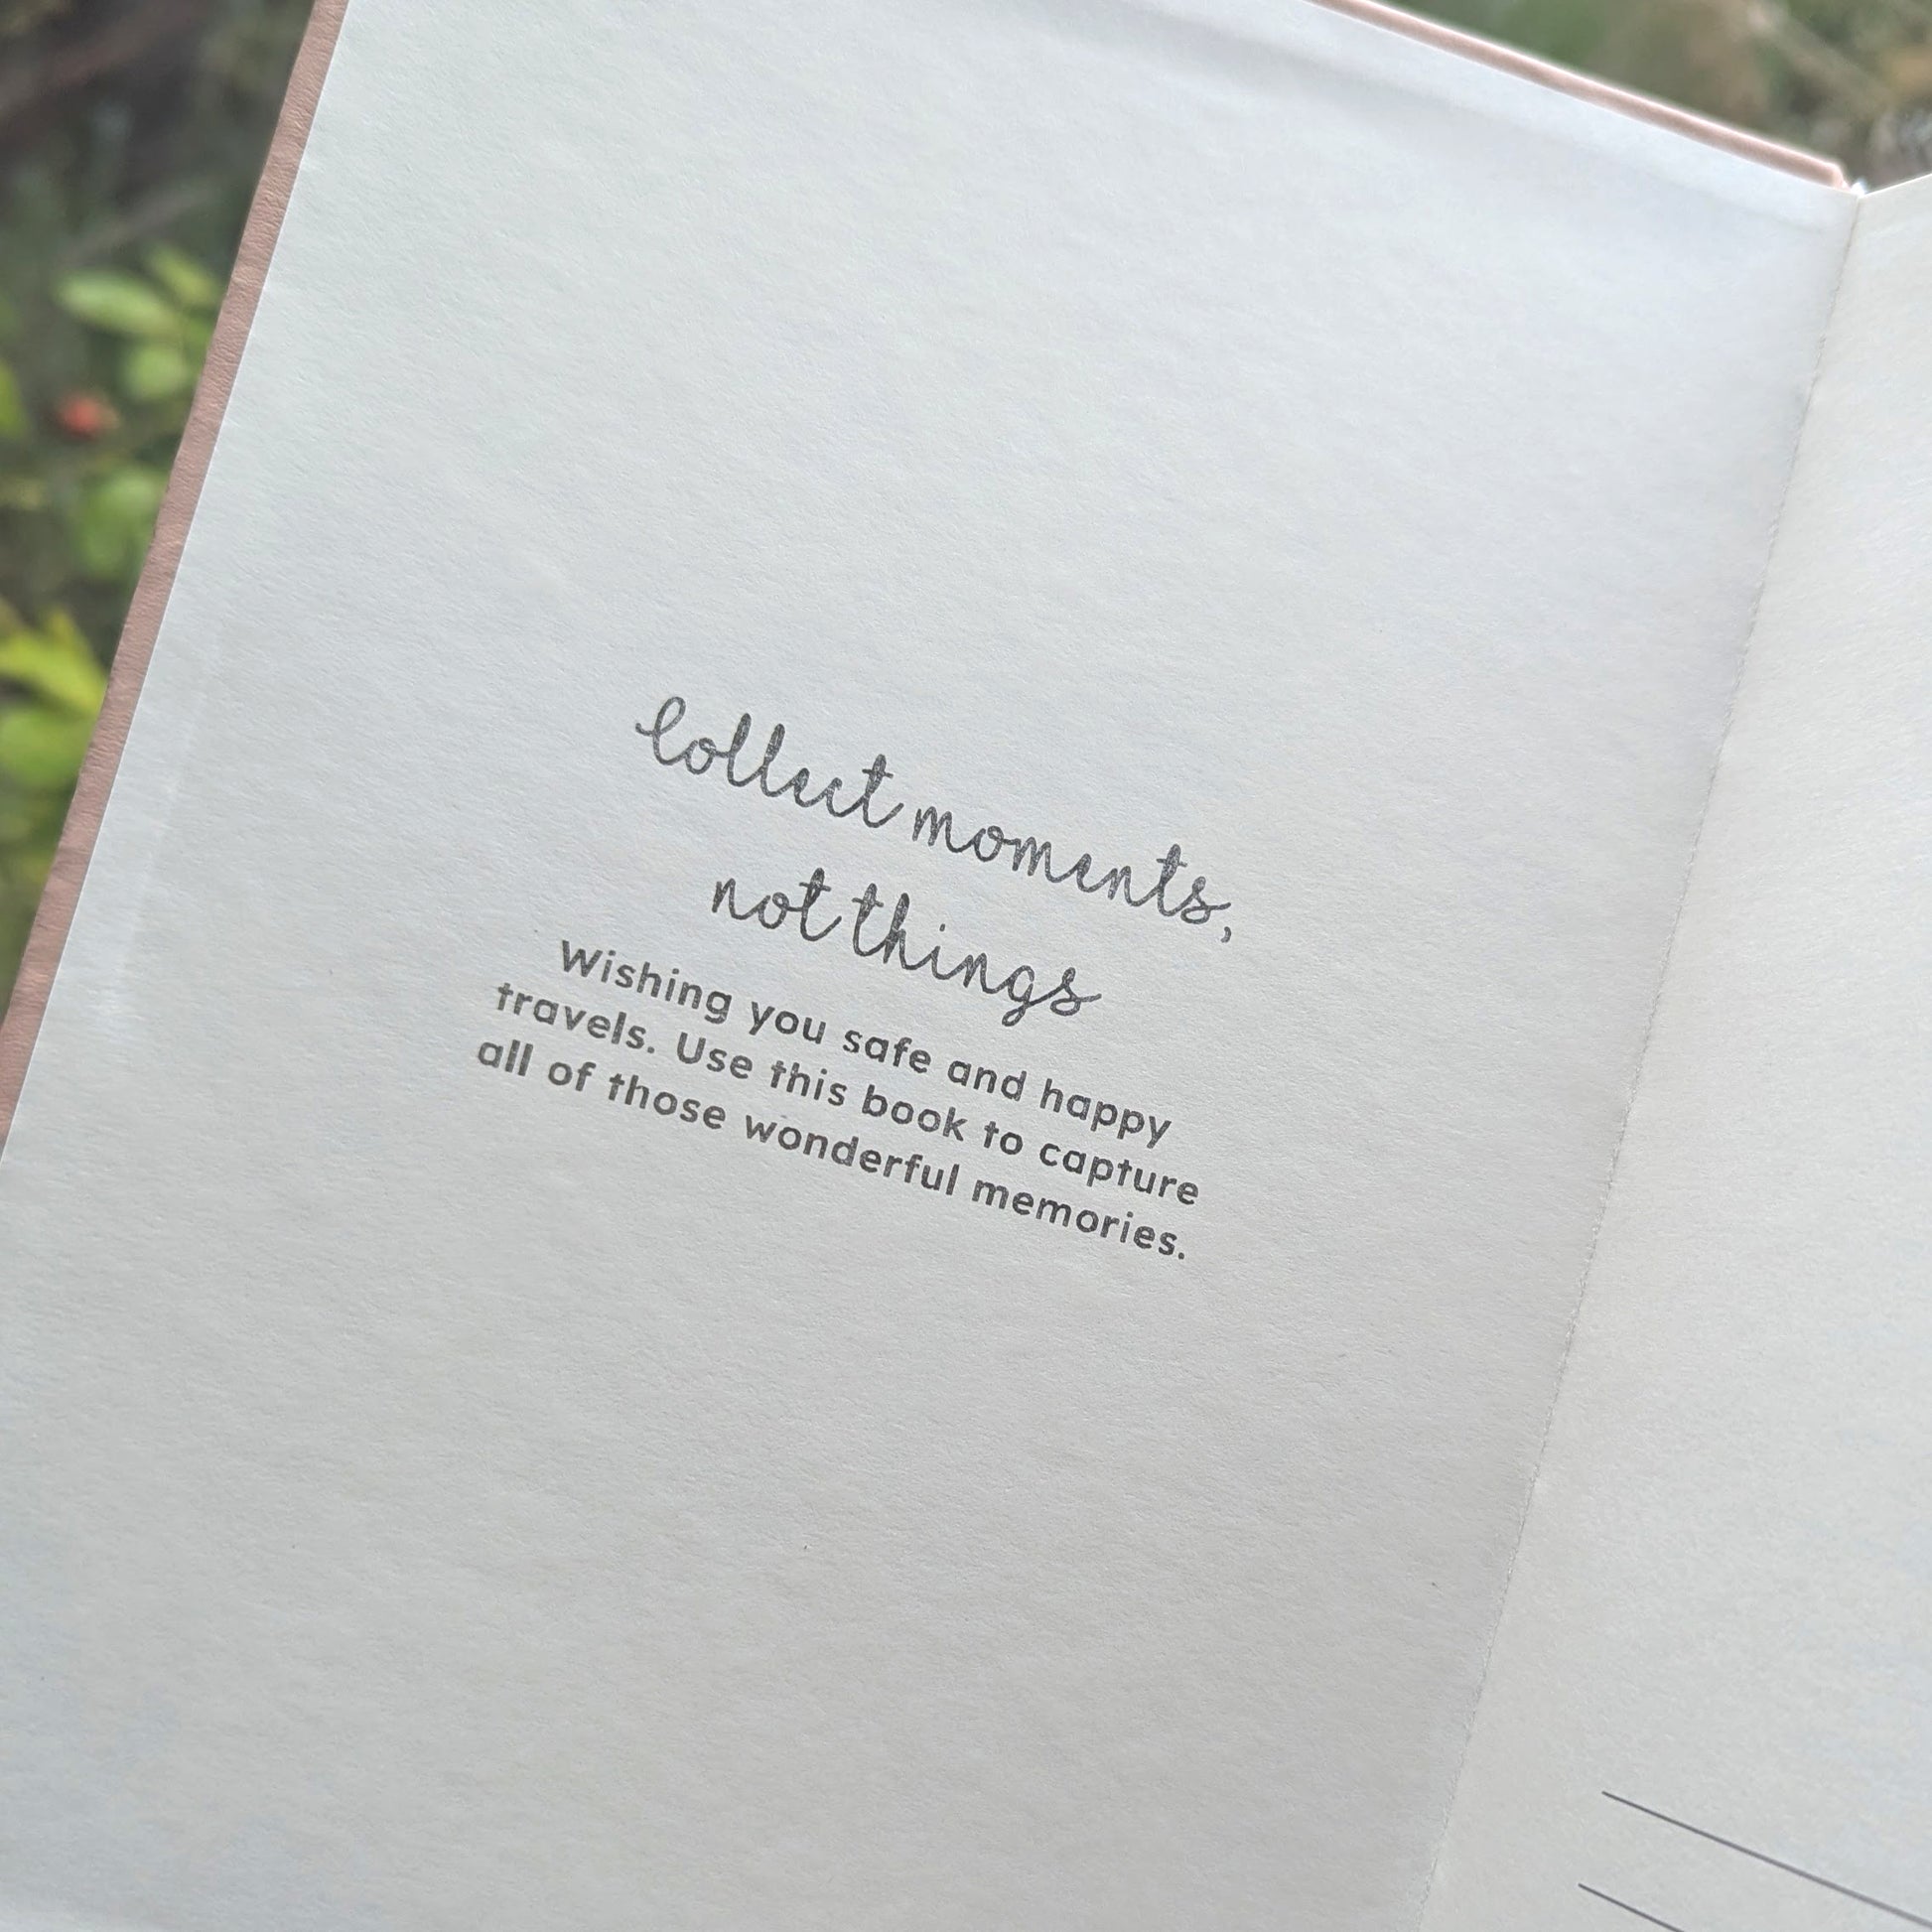 Collect moments,
not things
Wishing you safe and happy
travels. Use this book to capture
all of those wonderful memories.